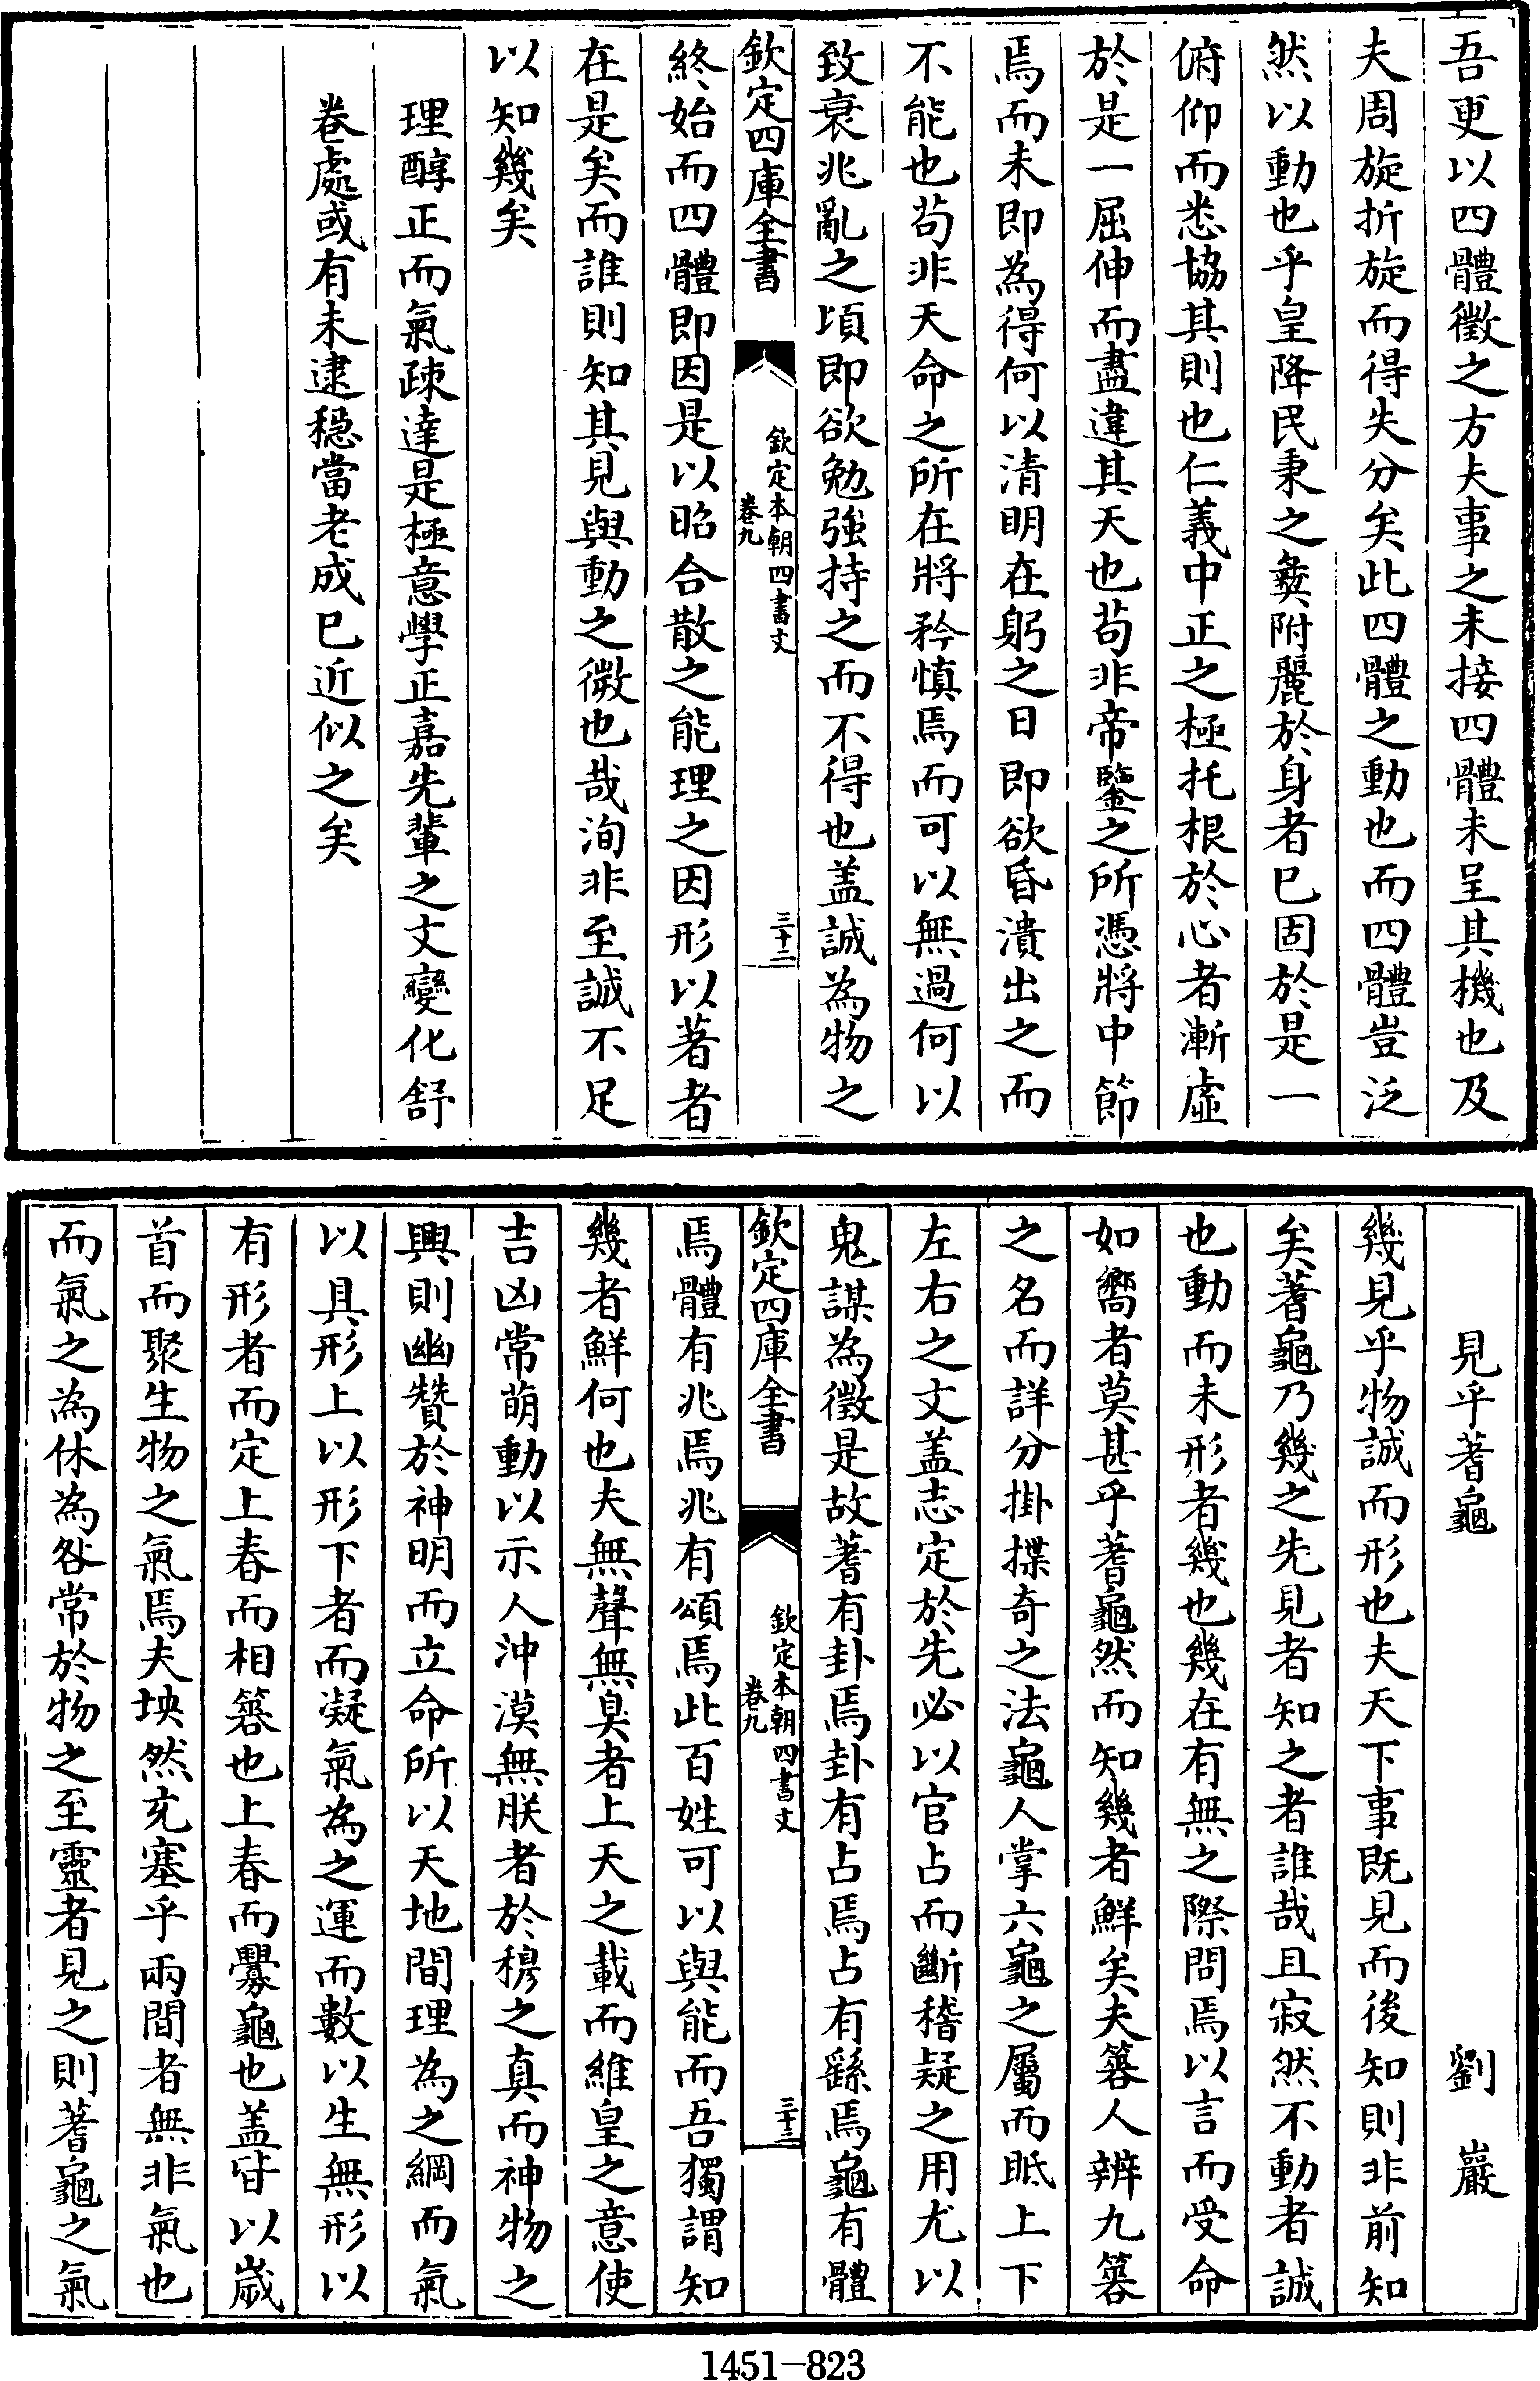 吾更以四體徵之方夫事之未接四體未呈其機也及
夫周旋折旋而得失分矣此四體之動也而四體豈泛
然以動也乎皇降民秉之彝附麗於身者已固於是一
俯仰而悉協其則也仁義中正之極托根於心者漸虛
於是一屈伸而盡違其天也苟非帝鑒之所憑將中節
焉而未即為得何以清明在躬之日即欲昏潰出之而
不能也苟非天命之所在將矜慎焉而可以無過何以
致衰兆亂之頃即欲勉強持之而不得也盖誠為物之
欽定四庫全書
欽定本朝四書文
卷九
三十二
終始而四體即因是以昭合散之能理之因形以著者
在是矣而誰則知其見與動之微也哉洵非至誠不足
以知幾矣
理醇正而氣疎達是極意學正嘉先輩之文變化舒
卷處或有未逮穩當老成已近似之矣
見乎蓍龜
劉巖
幾見乎物誠而形也夫天下事既見而後知則非前知
矣蓍龜乃幾之先見者知之者誰哉且寂然不動者誠
也動而未形者幾也幾在有無之際問焉以言而受命
如嚮者莫甚乎蓍龜然而知幾者鮮矣夫簭人辨九簭
之名而詳分掛揲奇之法龜人掌六龜之屬而眂上下
左右之文盖志定於先必以官占而斷稽疑之用尤以
鬼謀為徵是故蓍有卦焉卦有占焉占有繇焉龜有體
欽定四庫全書
欽定本朝四書文
卷九
三十三
焉體有兆焉兆有頌焉此百姓可以與能而吾獨謂知
幾者鮮何也夫無聲無臭者上天之載而維皇之意使
吉凶常萌動以示人沖漠無朕者於穆之真而神物之
興則幽贊於神明而立命所以天地間理為之綱而氣
以具形上以形下者而凝氣為之運而數以生無形以
有形者而定上春而相簭也上春而釁龜也盖皆以歲
首而聚生物之氣焉夫坱然充塞乎兩間者無非氣也
而氣之為休為咎常於物之至靈者見之則蓍龜之氣
1451-823